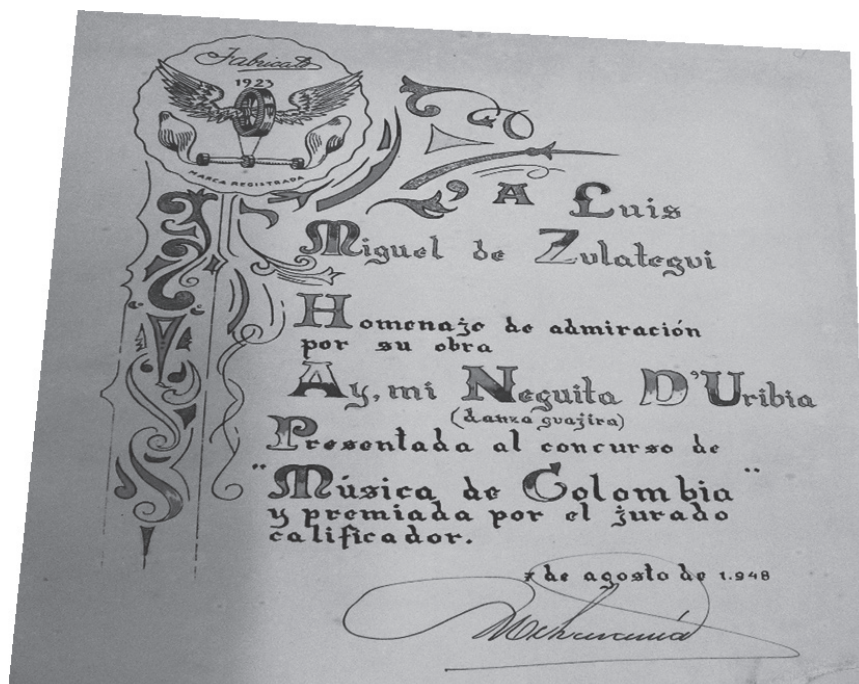 Fabricato
1923
MARCA REGISTRADA
A Luis
Miguel de Zulategui
Homenaje de admiración
por su obra
Ay, mi Neguita D'Uribia
(danza guajira)
Presentada al concurso de
"Música de Colombia"
y premiada por el jurado
calificador.
7 de agosto de 1.948